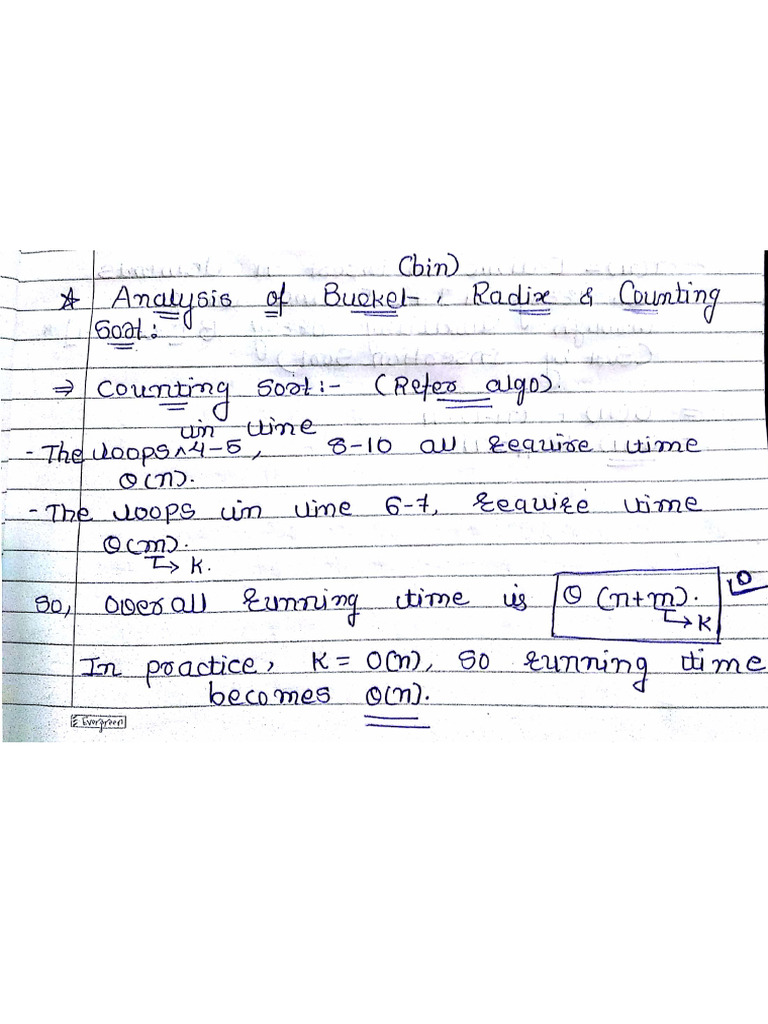 (bin)
* Analysis of Bucket, Radix & Counting
Sort:
⇒ Counting Sort:- (Refer algo).
in line
- The loops ^ 4-5, 8-10 all require time
Θ(n).
- The loops in line 6-7, require time
Θ(m).
↳ K.
So, Overall running time is Θ (n+m).
↳ K
In practice, K = O(n), so running time
becomes Θ(n).
Evergreen